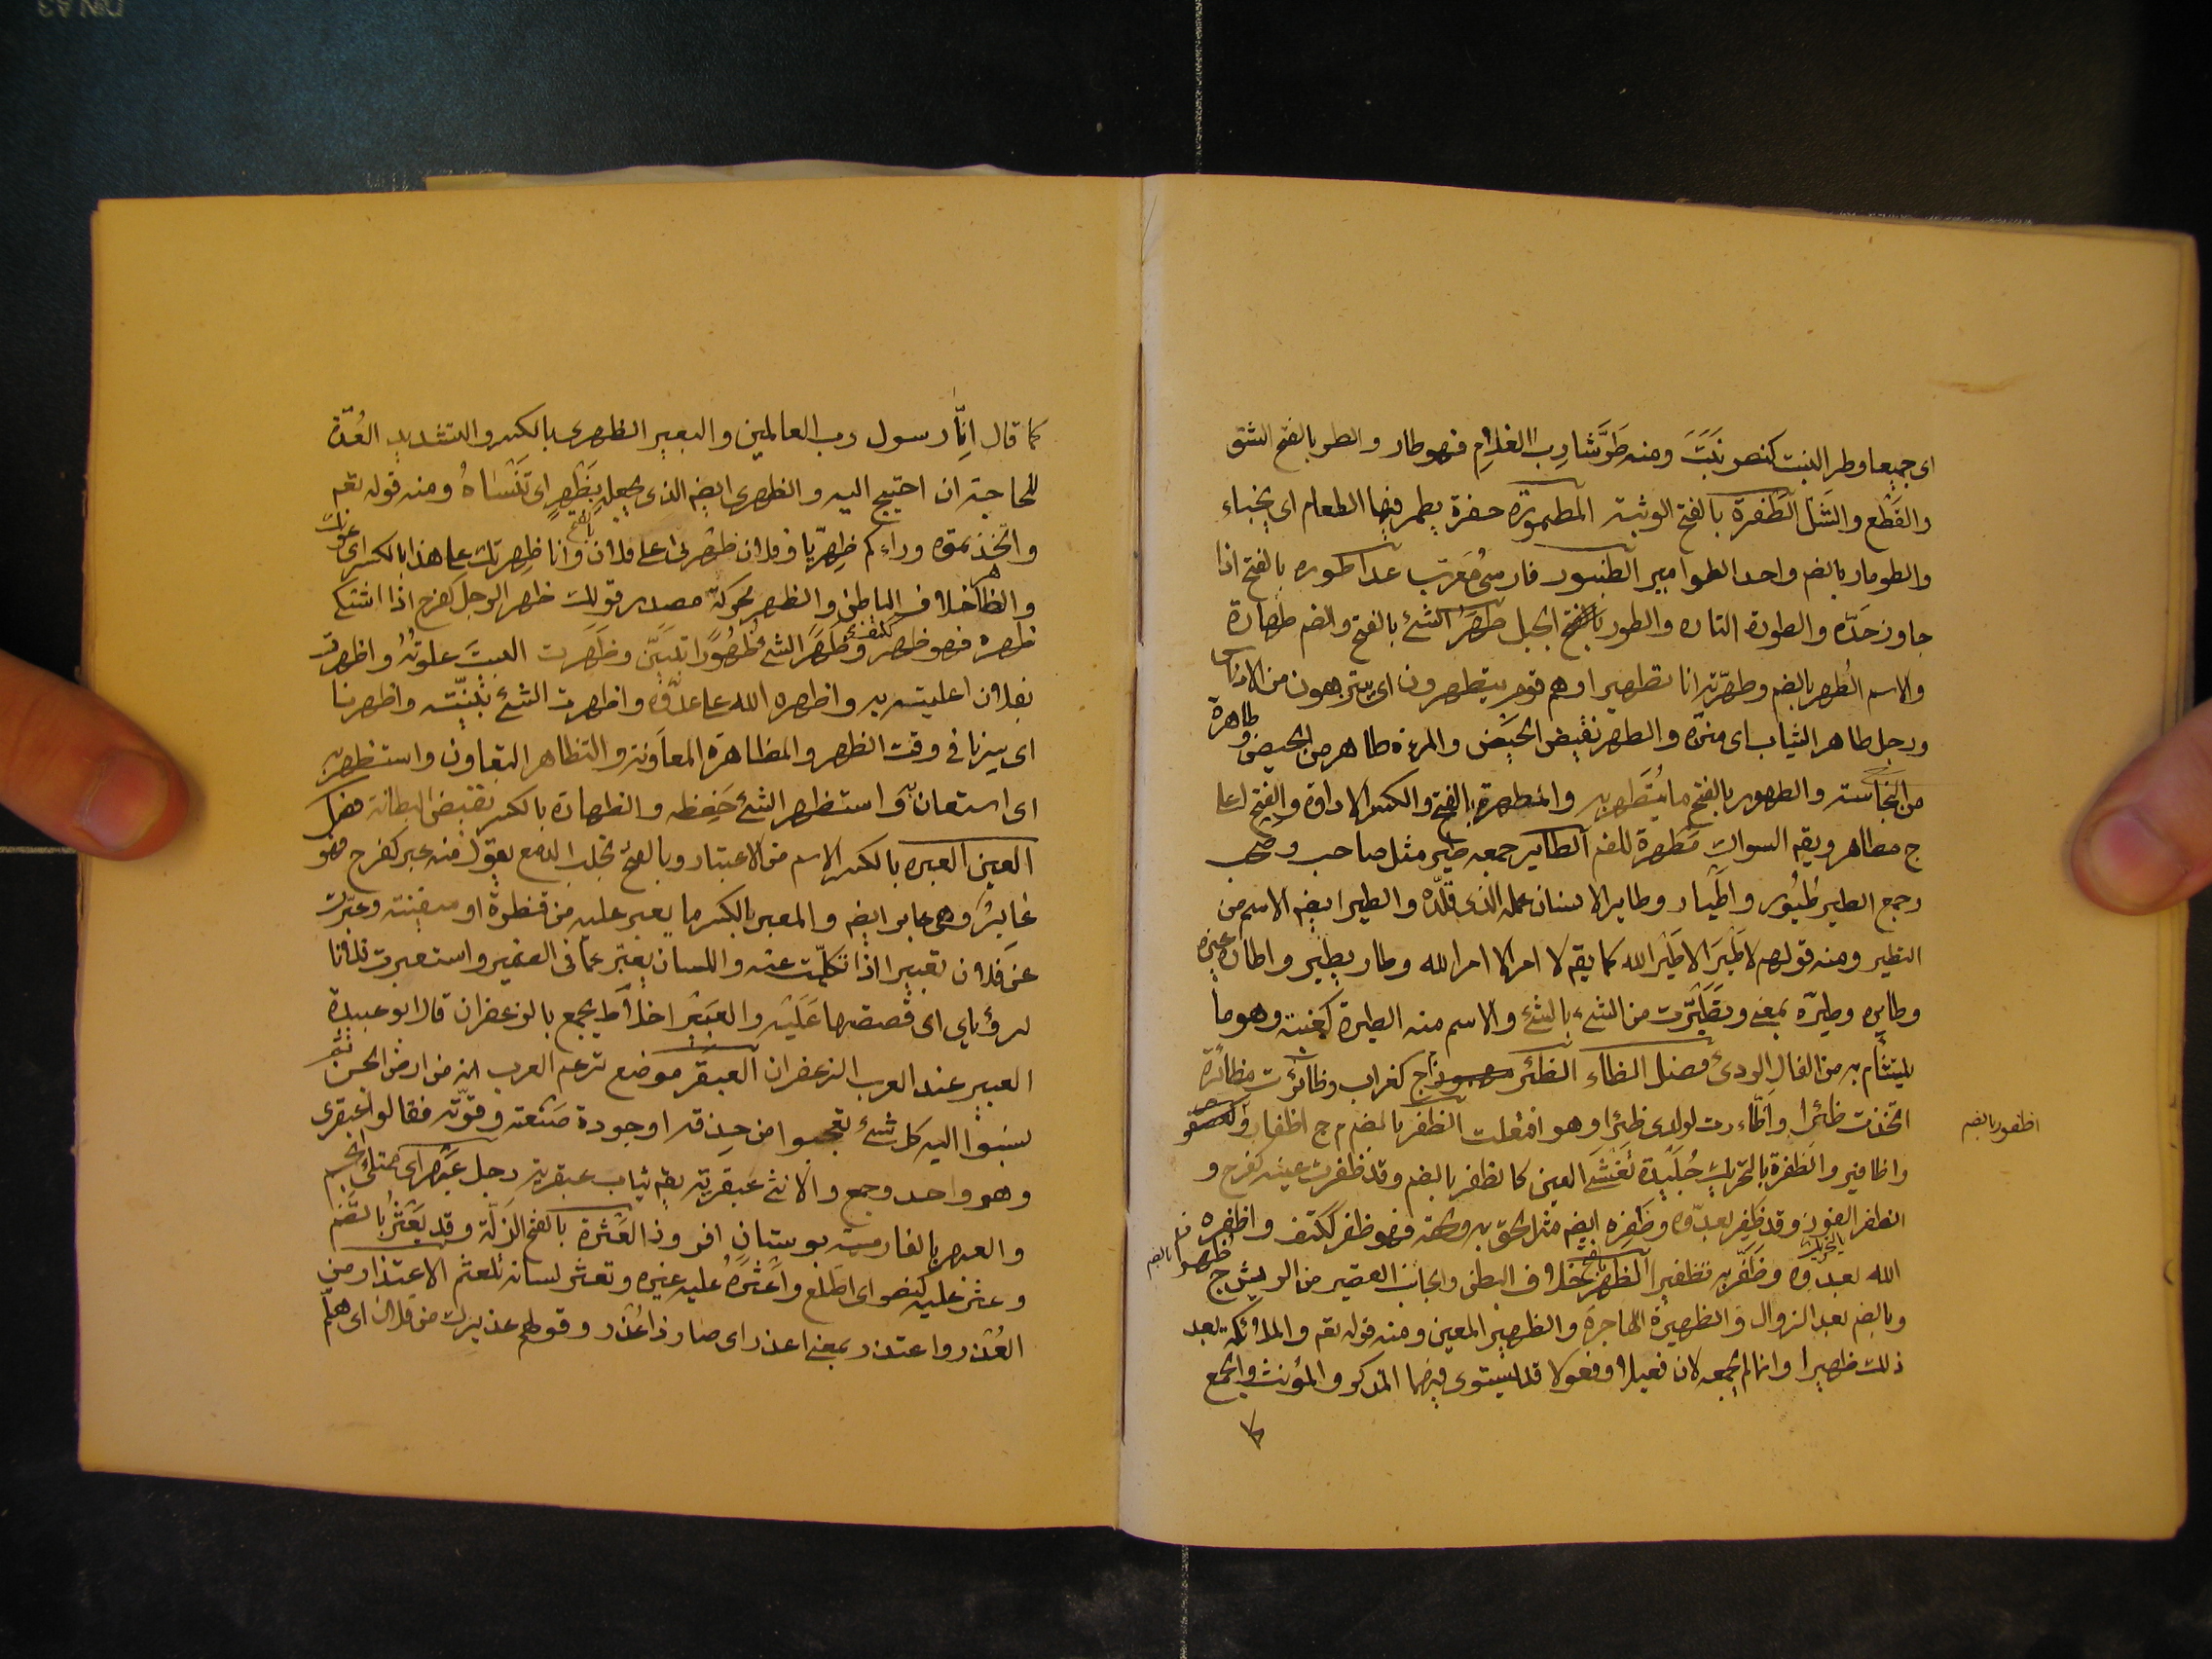 اى جميعا وطر النبت كنصر نَبَتَ ومنه طَرَّ شارِب الغلامِ فهو طار والطر بالفتح الشق
والقَطع والشَل الطَفرة بالفتح الوثبته المطمورَة حفرة يطمر فيها الطعام اى يخباء
والطومار بالضم واحد الطوامير الطنبور فارسى مُعَرّب عدا طوره بالفتح اذا
جاوز حَدّه والطورة التاره والطور بالفتح الجبل طهَرَ الشئ بالفتح والضم طهارة
والاسم الُطهر بالضم وطهّرته انا تطهيرا وهم قوم يتطهرون اى يتنزهون من الادناس
ورجل طاهر الثياب اى منزه والطهر نقيض الحَيض والمرءة طاهر من الحيض وطاهرة
من النجاسته والطهور بالفتح ما يُتَطهر به والمَطهرة بالفتح والكسر الاداوة والفتح اعلا
ج مطاهر ويقه السواك مَطهرة للفم الطاير جمعه طير مثل صاحب وصحب
وجمع الطير طُيُور واطيار وطاير الانسان عمله الذى قلّده والطير ايضه الاسم من
التطير ومنه قولهم لا طَيرَ الا طَيرُ الله كما يقه لا امر الا امر الله وطار يطير واطاره غيره
وطايره وطيرّه بمعنى وتَطَيَّرت من الشئ بالشئ والاسم منه الطيرة كعنبة وهو ما
يتشأم به من الفال الردئ فصل الظاء الظئر ج كغراب وظائرت مظائرة
اتخذت ظئرا واظّاءرت لولدى ظئرا وهو افتعلت الظفر بالضم م ج اظفار
اظفور بالضم
واظافير والظفرة بالتحريك جُلَيدة تُغَشى العين كالظفر بالضم وقد ظفرت عينه كفرح و
الظفر الفوز وقد ظَفِر بعدوّه وظَفِره ايضه مثل لحق به ولحقه فهو ظفر ككتف واظفره
الله بعدوه وظَفّر به تظفيرا الظهر بالفتح خلاف البطن والجانب القصير من الريش ج ظهران بالضم
وبالضم بعد الزوال والظهيرة الهاجرة والظهير المعين ومنه قوله تعه والملائكة بعد
ذلك ظهيرا وانما لم يجمعه لان فعيلا وفعولا قد يستوى فيهما المذكر والمؤنث والجمع
كما قال اِنّا رسول رب العالمين والبعير الظهرى بالكسر والتشديد العُدّة
للحاجته ان احتيج اليه والظهرى ايضه الذى يجعله بِظَهرٍ اى تَنسَاهُ ومنه قوله تعه
واتّخذتموه وراءكم ظِهرّيا وفلان ظهرتى على فلان وانا ظهرتك على هذا بالكسر اى عونك
والظاهر خلاف الباطن والظهر محركة مصدر قولك ظهر الرجل كفرح اذا اشتكى
ظهره فهو ظهر ككتف وظَهَرَ الشئ ظُهُورًا تَبيَّن وظَهَرت البيتَ علوتُهُ واظهرت
بفلان اعليته به واظهره الله على عدوّه واظهرت الشئ بيّنته واظهرنا
اى سيرنا فى وقت الظهر والمظاهرة المعاونة والتظاهر التعاون واستظهر به
اى استعان به واستظهر الشئ حَفِظه والظهارة بالكسر نقيض البطانة فصل
العين العبره بالكسر الاسم من الاعتبار وبالفتح تحلب الدمع يقول منه عبر كفرح فهو
عابِرٌ وهى عابر ايضه والمعبر بالكسر ما يعبر عليه من قنطرة او سفينته وعبّرت
عن فلان تعبيرا اذا تكلّمت عنه واللسان يعبّر عما فى الضمير واستعبرت فلانا
لرؤياى اى قصصتها عَلَيْه والعَبير اخلاط يجمع بالزعفران قال ابو عبيدة
العبير عند العرب الزعفران العبقر موضع تزعم العرب انه من ارض الجن ثم
نسبوا اليه كل شئ تعجبوا من حِذقه او جودة صَنعته وقوّته فقالوا عبقرى
وهو واحد وجمع والانثى عبقرية يقه ثياب عبقرية رجل عَبهر اى ممتلئ الجسم
والعبهر بالفارسيته بوستان افروذ العَثرة بالفتح الزَلّة وقد يَعثُر بالضَم
وعثر عليه كنصر اى اطلع واَعثَره عليه غيره وتعثر لسانه تلعثم الاعتذار من
العُذر واعتذر بمعنى اعذر اى صار ذا عُذر وقولهم عذيرك من فلان اى هلمّ